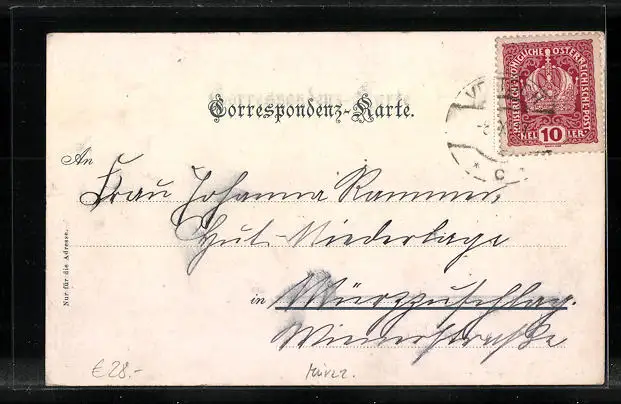 Correspondenz-Karte.
KAISERLICH KÖNIGLICHE ÖSTERREICHISCHE POST
HEL 10 LER
C
An
Frau Johanna Rammer,
Hut-Niederlage
in Mürzzuschlag.
Wienerstraße
Nur für die Adresse.
€ 28.-
Mürzz.